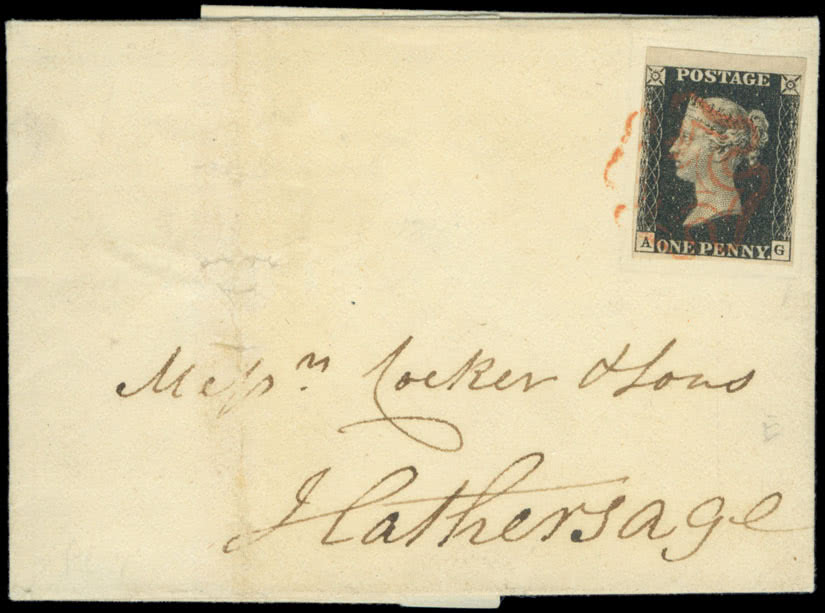 POSTAGE
A ONE PENNY. G
Messrs Cocker & Sons
Hathersage